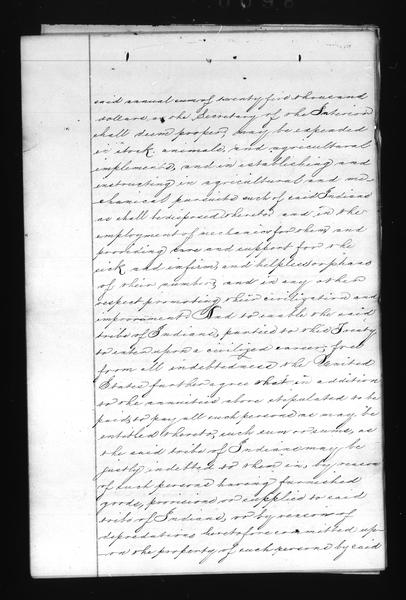 said annual sum of twenty five thousand
dollars, as the Secretary of the Interior
shall deem proper, may be expended
in stock, animals, and agricultural
implements, and in establishing and
instructing in agricultural and me-
chanical pursuits such of said Indians
as shall be disposed thereto; and in the
employment of mechanics for them, and
providing care and support for the
sick and infirm, and helpless orphans
of their number, and in any other
respect promoting their civilization and
improvement. And to enable the said
tribe of Indians, parties to this Treaty
to enter upon a civilized career, free
from all indebtedness the United
States further agree that in addition
to the annuities above stipulated to be
paid, to pay all such persons as may be
entitled thereto, such sum or sums, as
the said tribe of Indians may be
justly indebted to them in, by reason
of such persons having furnished
goods, provisions or supplies to said
tribe of Indians, or by reason of
depredations heretofore committed up-
on the property of such persons by said